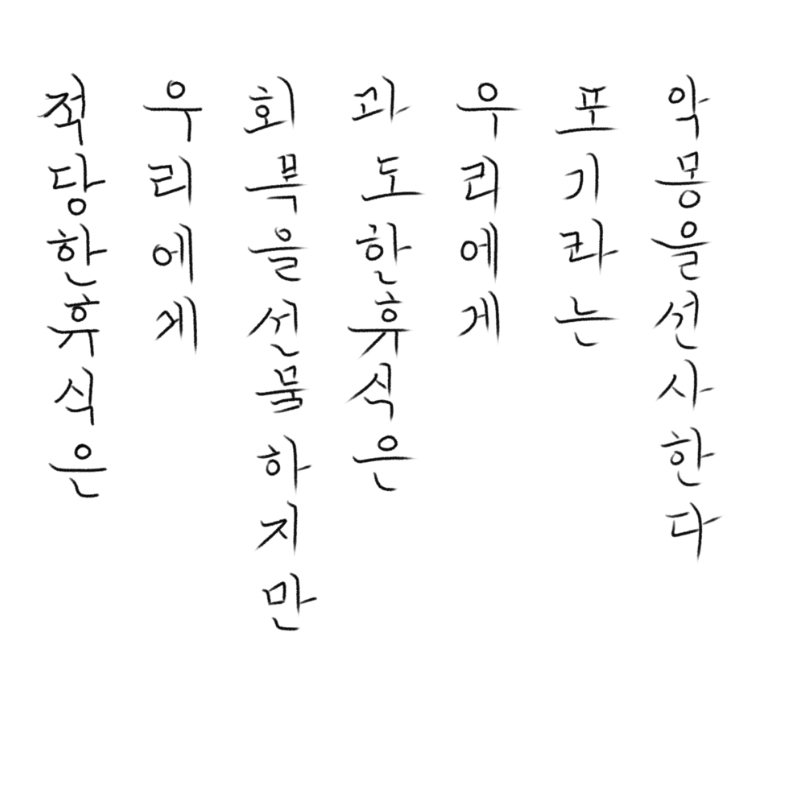 적당한휴식은
우리에게
회복을선물하지만
과도한휴식은
우리에게
포기라는
악몽을선사한다